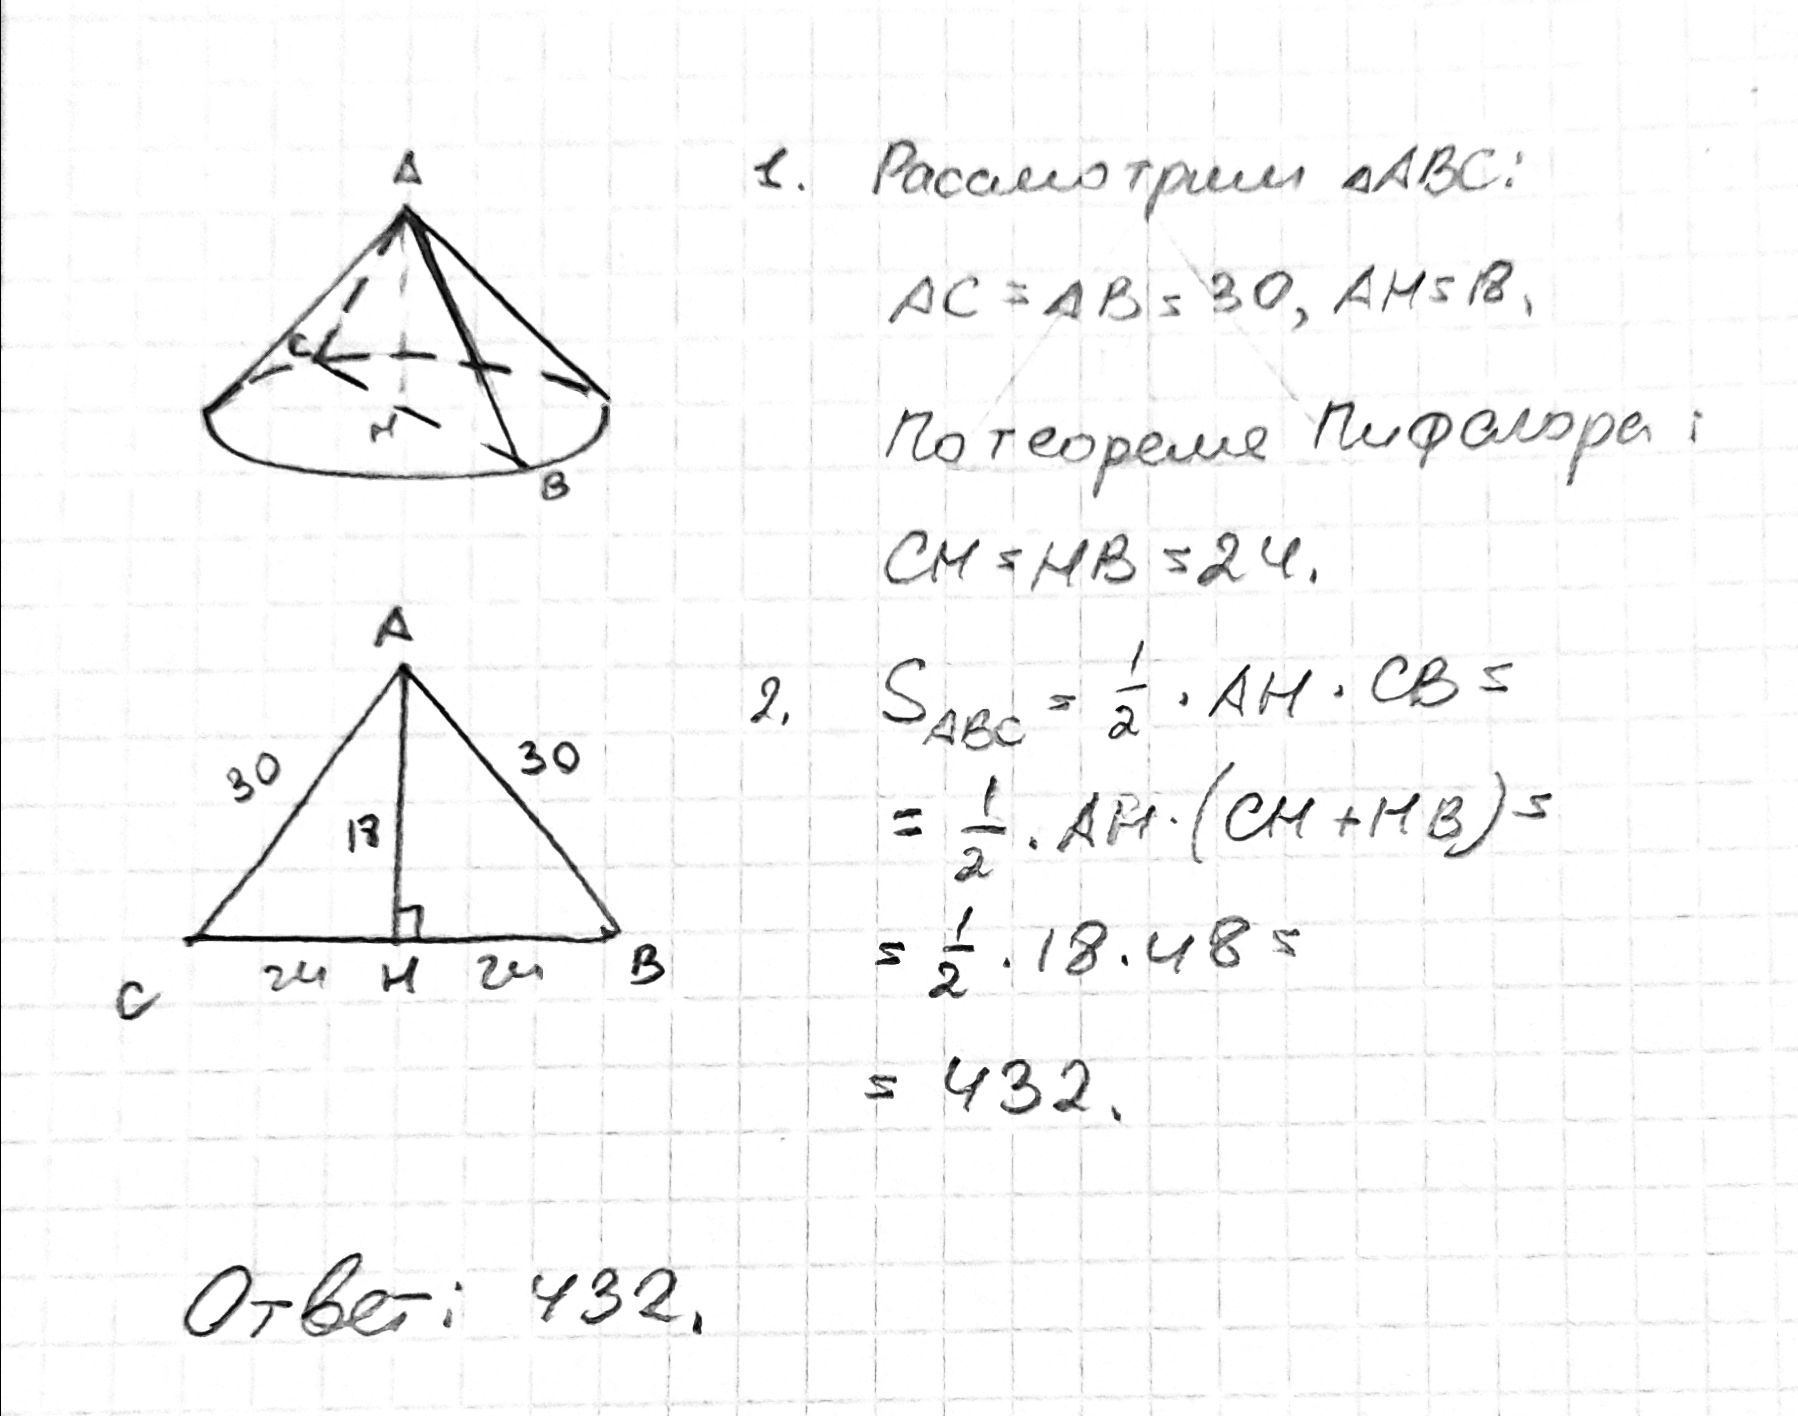 A
C
H
B
A
30
30
18
C
24
H
24
B
1. Рассмотрим △ABC:
AC = AB = 30, AH = 18.
По теореме Пифагора:
CH = HB = 24.
2. S_ABC = 1/2 · AH · CB =
= 1/2 · AH · (CH + HB) =
= 1/2 · 18 · 48 =
= 432.
Ответ: 432.